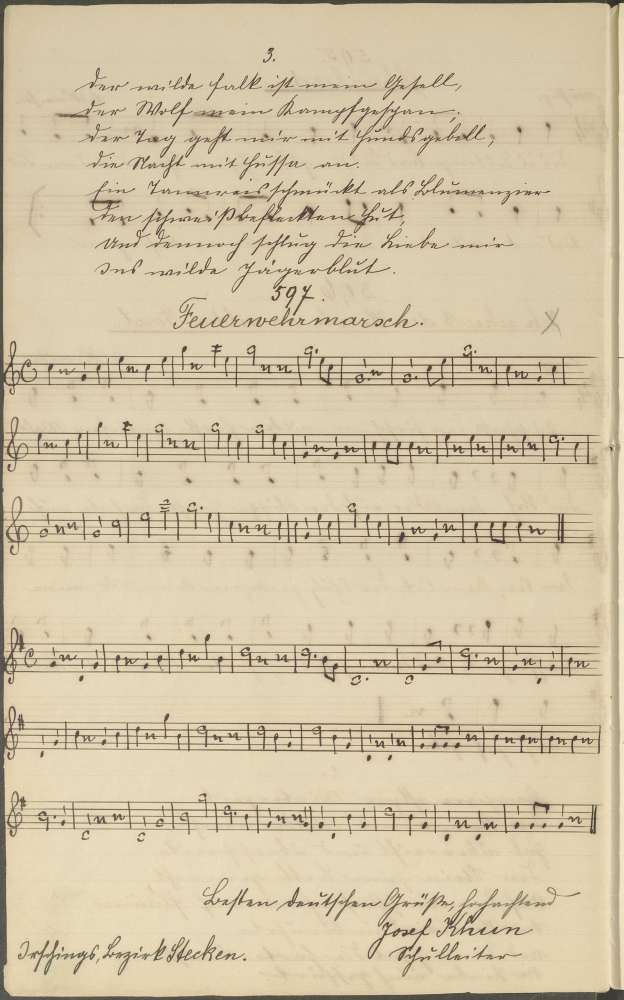 3.
Der wilde Falk ist mein Gesell,
Der Wolf mein Kampfgespan;
Der Tag geht mir mit Hundsgebell,
die Nacht mit Hussa an.
Ein Tannreis schmückt als Blumenzier
den schweißbefleckten Hut,
Und dennoch schlug die Liebe mir
Ins wilde Jägerblut.
597.
Feuerwehrmarsch.
X
Besten deutschen Grüße, hochachtend
Josef Khun
Irschings, Bezirk Stecken.
Schulleiter